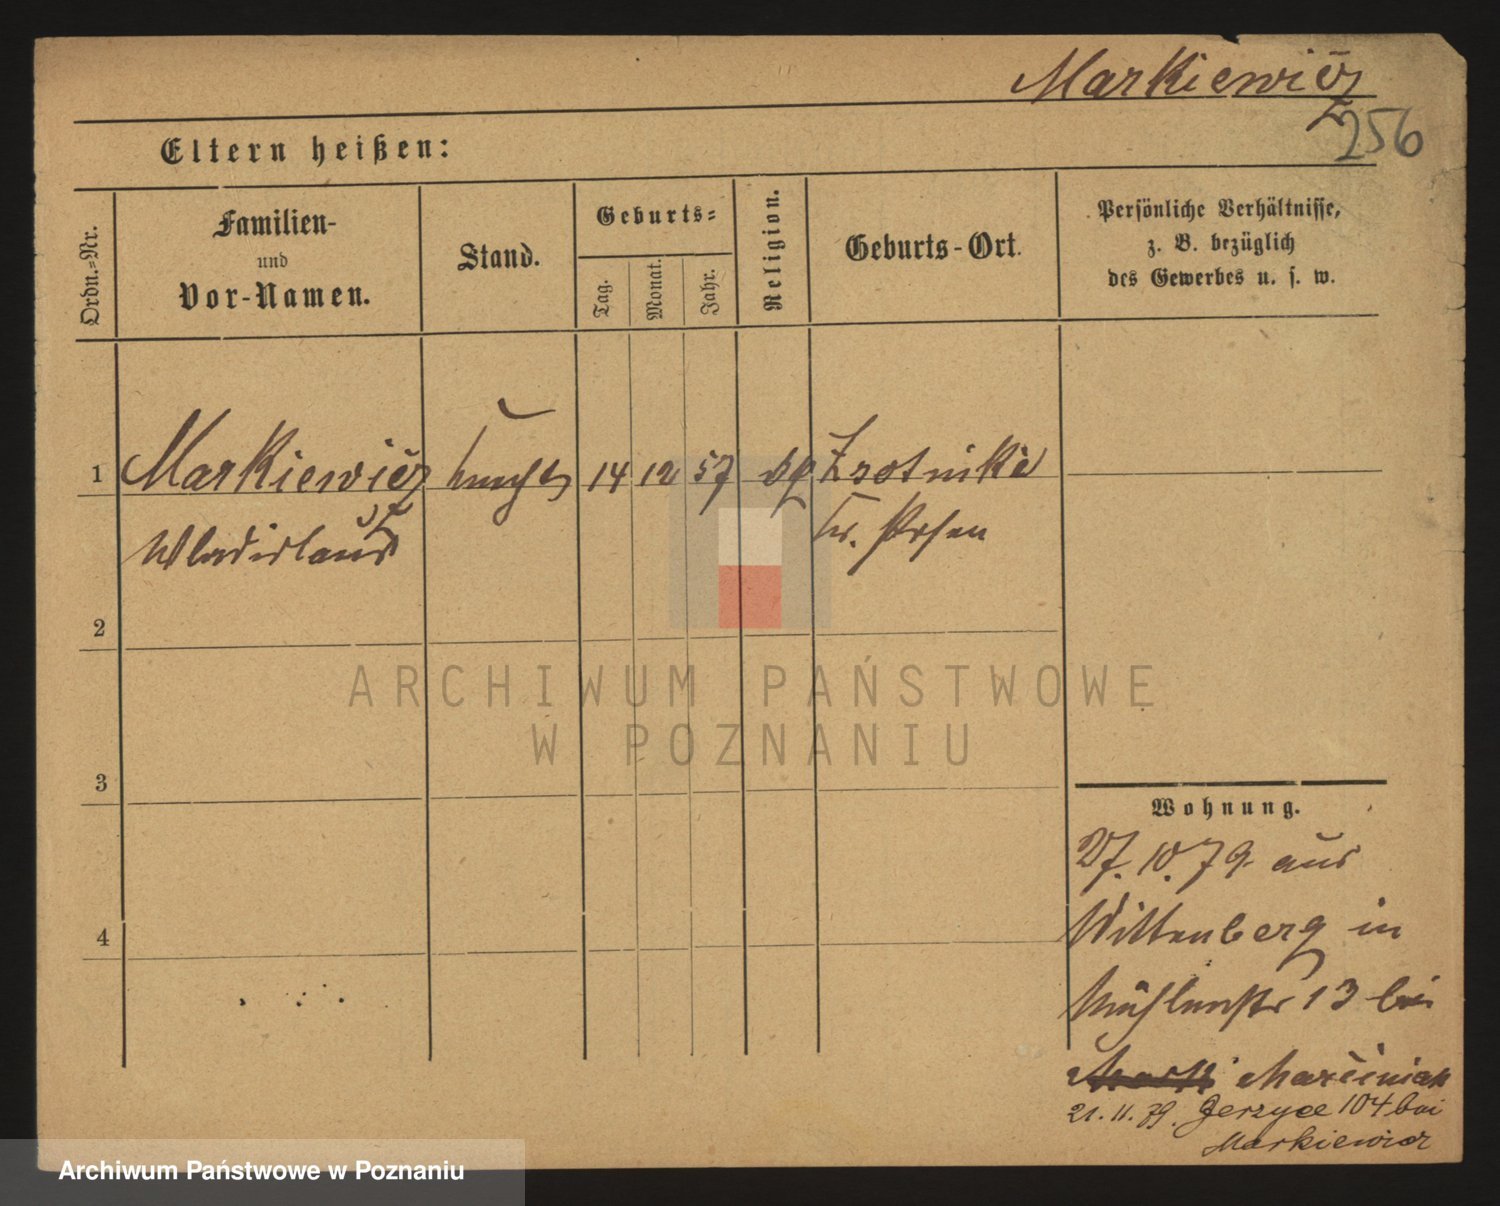 Markiewicz
256
Eltern heißen:
Ordn.-Nr.
Familien-
und
Vor-Namen.
Stand.
Geburts-
Tag.
Monat.
Jahr.
Religion.
Geburts-Ort.
Persönliche Verhältnisse,
z. B. bezüglich
des Gewerbes u. s. w.
1 Markiewicz 14 12 57
Wladislaus Kr. Posen
2
3
4
Wohnung.
27. 10. 79. aus
Wittenberg in
Mühlenstr 13 bei
Marciniak
21. 11. 79. Jerzyce 104 bei
Markiewicz
ARCHIWUM PAŃSTWOWE
W POZNANIU
Archiwum Państwowe w Poznaniu